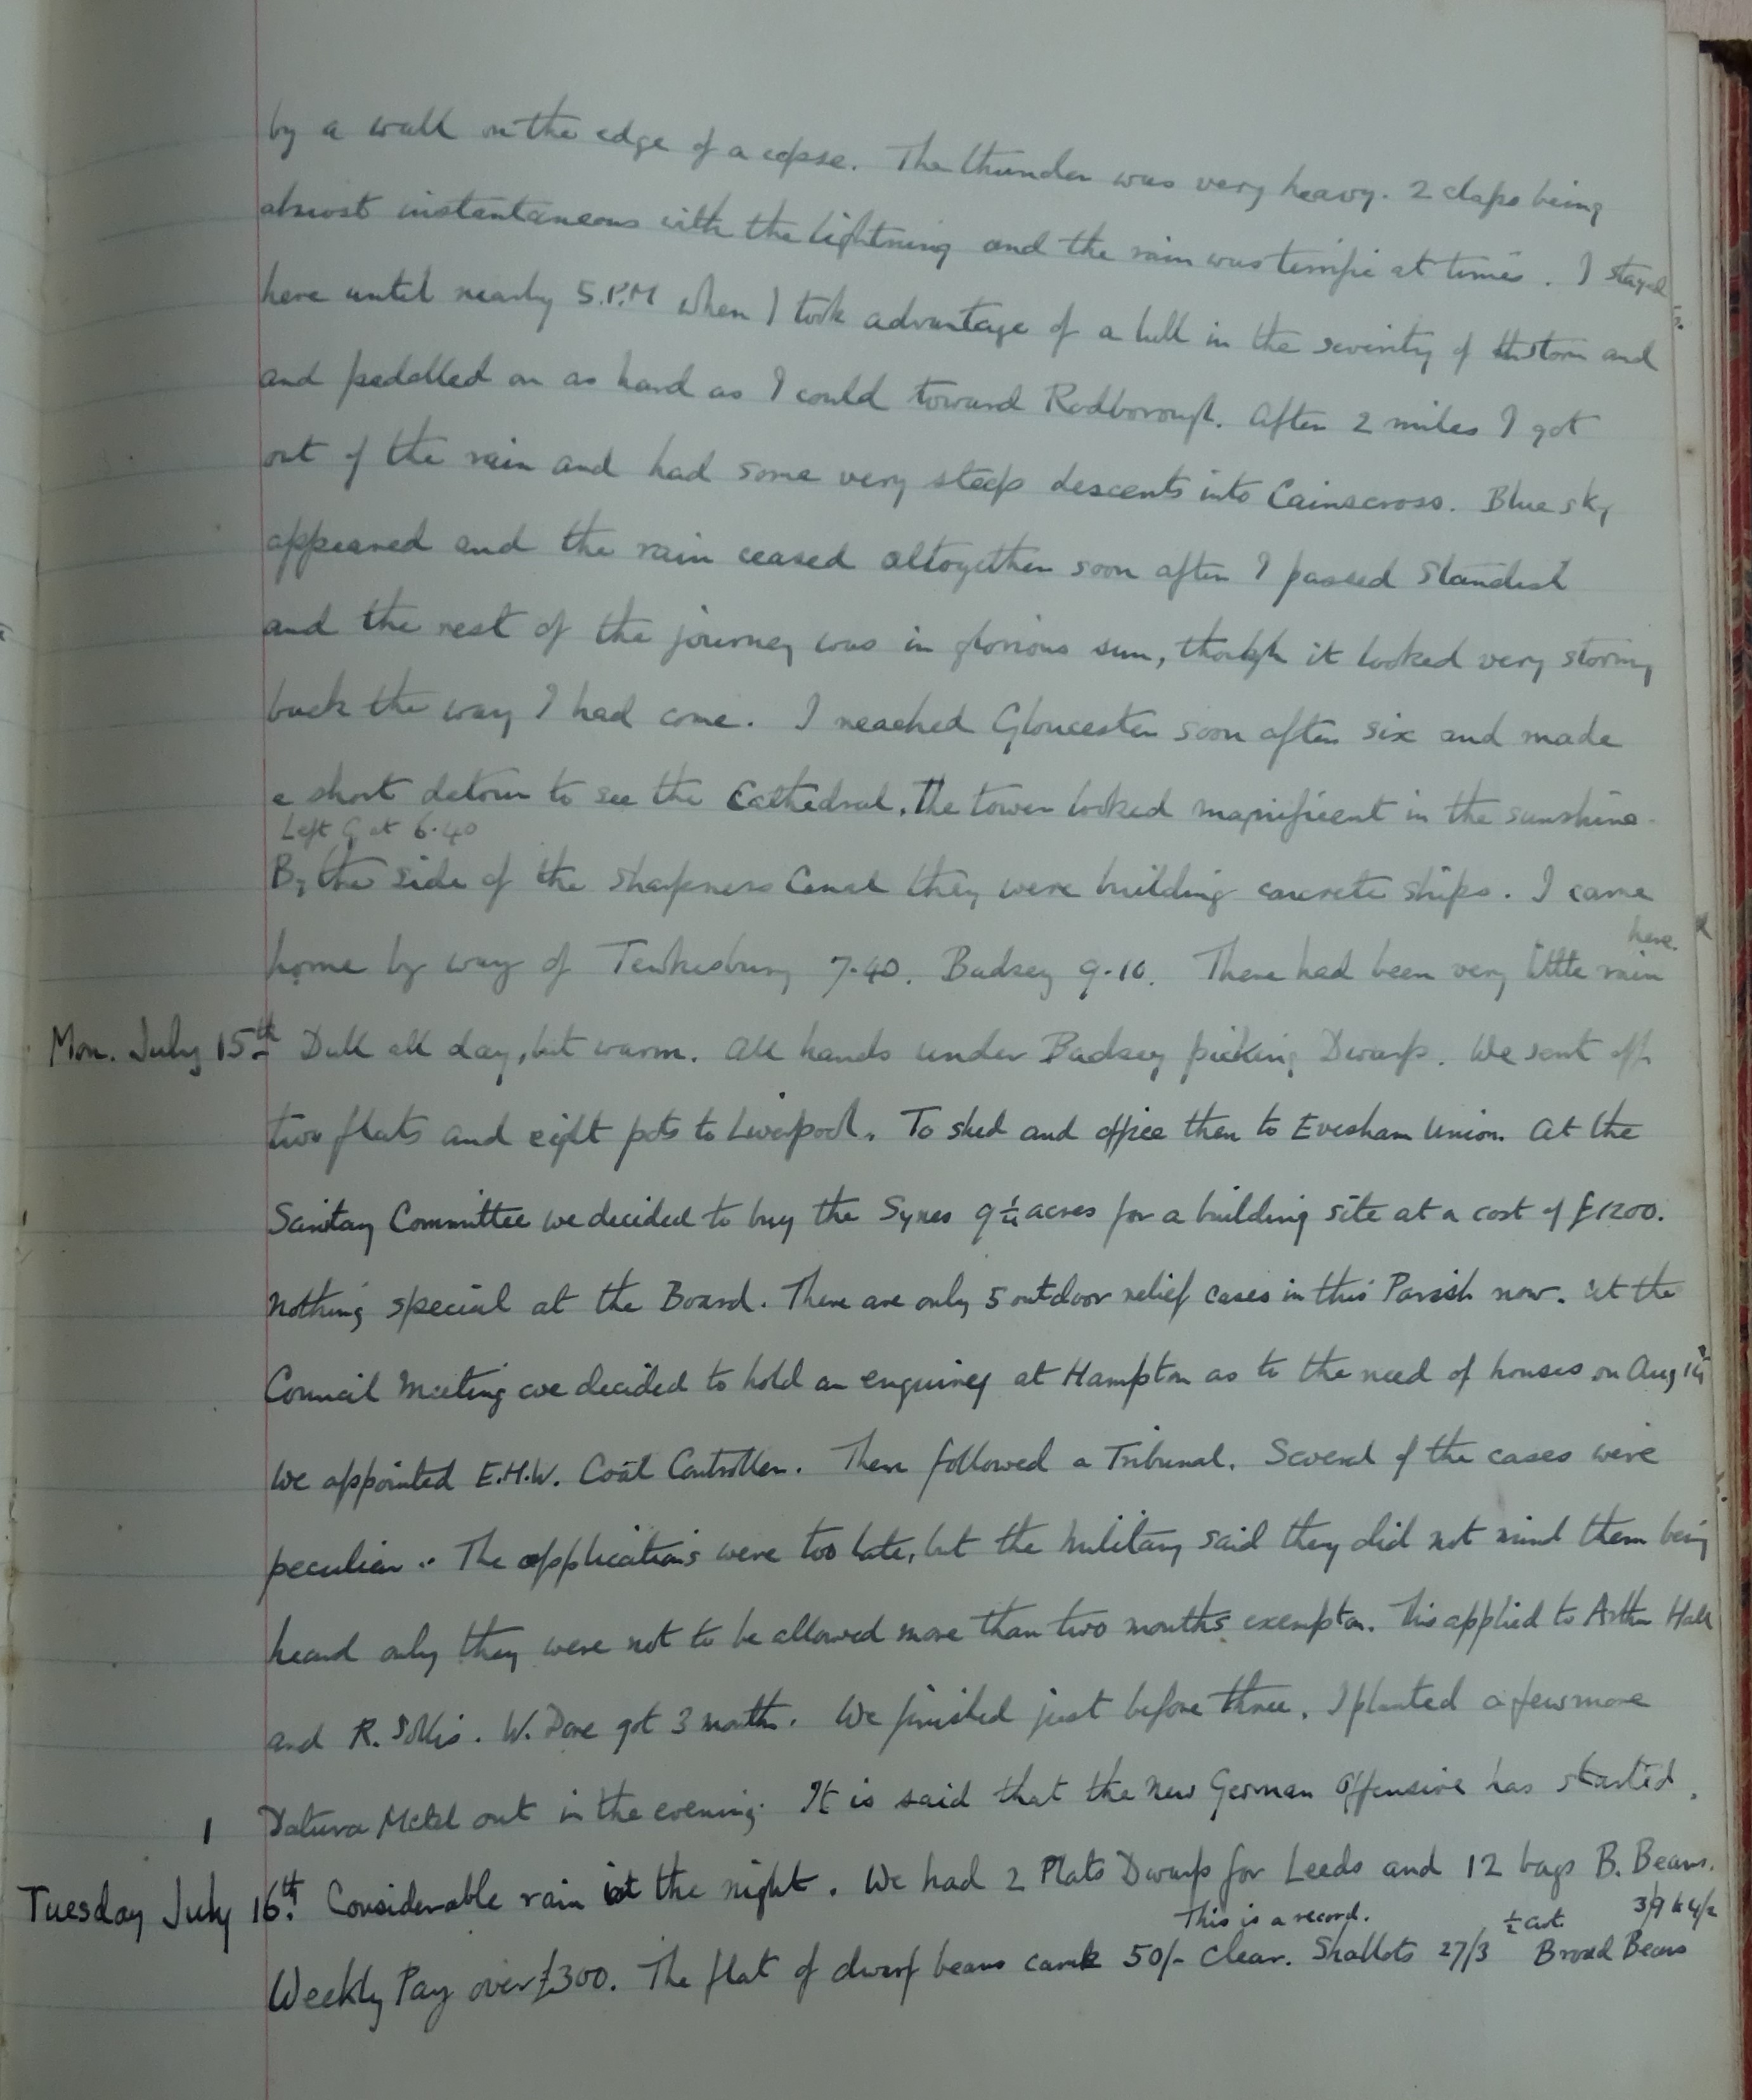 by a wall on the edge of a copse. The thunder was very heavy. 2 claps being
almost instantaneous with the lightning and the rain was terrific at times. I stayed
here until nearly 5.P.M when I took advantage of a lull in the severity of the storm and
and pedalled on as hard as I could toward Rodborough. After 2 miles I got
out of the rain and had some very steep descents into Cainscross. Blue sky
appeared and the rain ceased altogether soon after I passed Standish
and the rest of the journey was in glorious sun, though it looked very stormy
back the way I had come. I reached Gloucester soon after six and made
a short detour to see the Cathedral. The tower looked magnificent in the sunshine.
Left G at 6.40
By the side of the Sharpness Canal they were building concrete ships. I came
here.
home by way of Tewkesbury 7.40. Badsey 9.10. There had been very little rain
Mon. July 15th Dull all day, but warm. All hands under Badsey picking Dwarfs. We sent off
two flats and eight pots to Liverpool. To shed and office then to Evesham Union. At the
Sanitary Committee we decided to buy the Synes 9¼ acres for a building site at a cost of £1200.
Nothing special at the Board. There are only 5 outdoor relief cases in this Parish now. At the
Council Meeting we decided to hold an enquiry at Hampton as to the need of houses on Aug
We appointed E.H.W. Coal Controller. Then followed a Tribunal. Several of the cases were
peculiar. The applications were too late, but the Military said they did not mind them being
heard only they were not to be allowed more than two months exemption. This applied to Arthur Hall
and R. Sollis. W. Dore got 3 months. We finished just before three. I planted a few more
Datura Metel out in the evening. It is said that the new German Offensive has started.
1
Tuesday July 16th. Considerable rain in the night. We had 2 Flats Dwarfs for Leeds and 12 bags B. Beans.
This is a record. ½ cwt. 3/9 to 4/2
Weekly Pay over £300. The flat of dwarf beans came 50/- clear. Shallots 27/3 Broad Beans